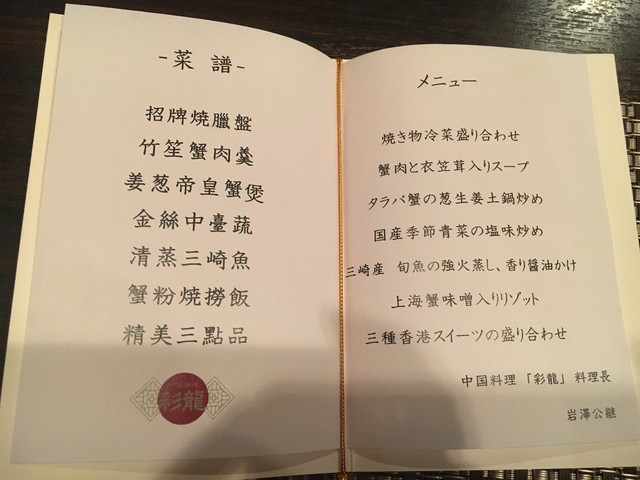 -菜 譜-
招牌燒臘盤
竹笙蟹肉羹
姜葱帝皇蟹煲
金絲中臺蔬
清蒸三崎魚
蟹粉燒撈飯
精美三點品
彩龍
メニュー
焼き物冷菜盛り合わせ
蟹肉と衣笠茸入りスープ
タラバ蟹の葱生姜土鍋炒め
国産季節青菜の塩味炒め
三崎産 旬魚の強火蒸し、香り醤油かけ
上海蟹味噌入りリゾット
三種香港スイーツの盛り合わせ
中国料理「彩龍」料理長
岩澤公継